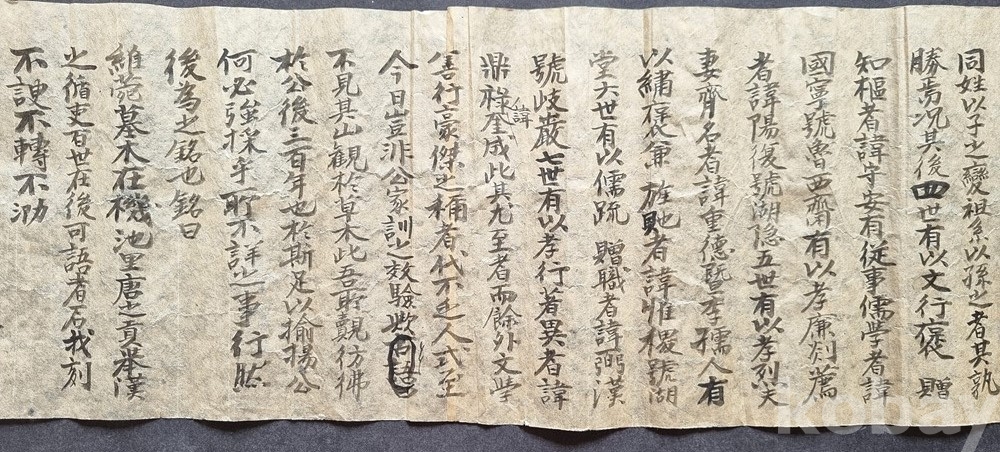 同姓以子之變祖系以孫之者其孰
勝焉况其後四世有以文行褒 贈
知樞者諱守安有從事儒學者諱
國寧號魯西齋有以孝廉刻薦
者諱陽復號湖隐五世有以孝烈夫
妻齊名者諱重德曁李孺人有
以繡褒兼旌貤者諱惟稷號湖
堂六世有以儒䟽 贈職者諱弼漢
號岐巖七世有以孝行著異者諱
鼎祿諱奎成此其尢至者而餘外文學
善行豪傑之稱者代不乏人式至
今日豈非公家訓之效驗歟
不見其山觀於草木此吾所覿彷彿
於公後三百年也於斯足以揄揚公
何必強採乎所不詳之事行然
後為之銘也銘曰
維菀墓木在機池里唐之貢舉漢
之循吏百世在後可語者石我刻
不諛不轉不泐
kobay